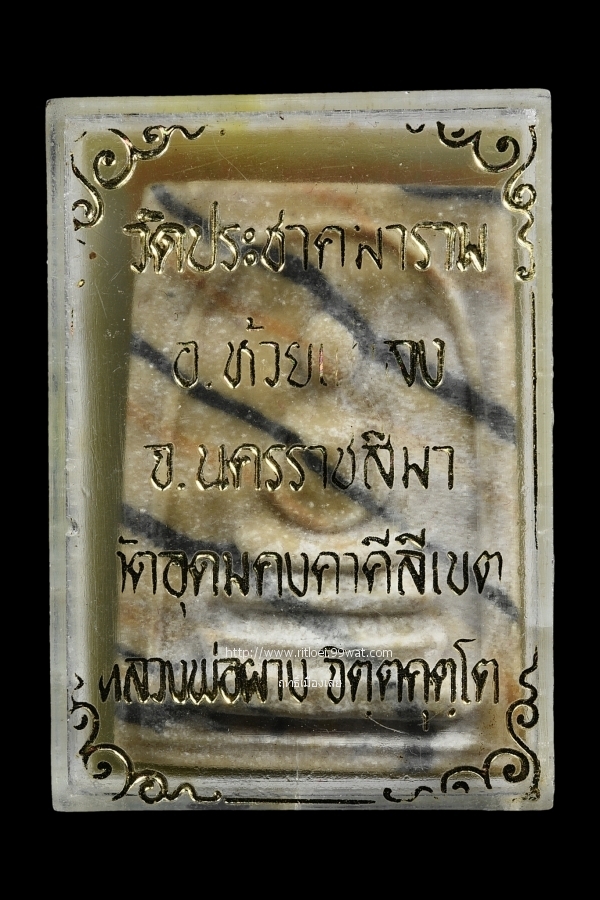 วัดประชาคมาราม
อ.ห้วย
จ.นครราชสีมา
วัดอุดมคงคาคีลีเขต
http://www.ritloei.99wat.com
หลวงพ่อผาง จิตฺตคุตฺโต
ฤทธิ์เมืองเลย